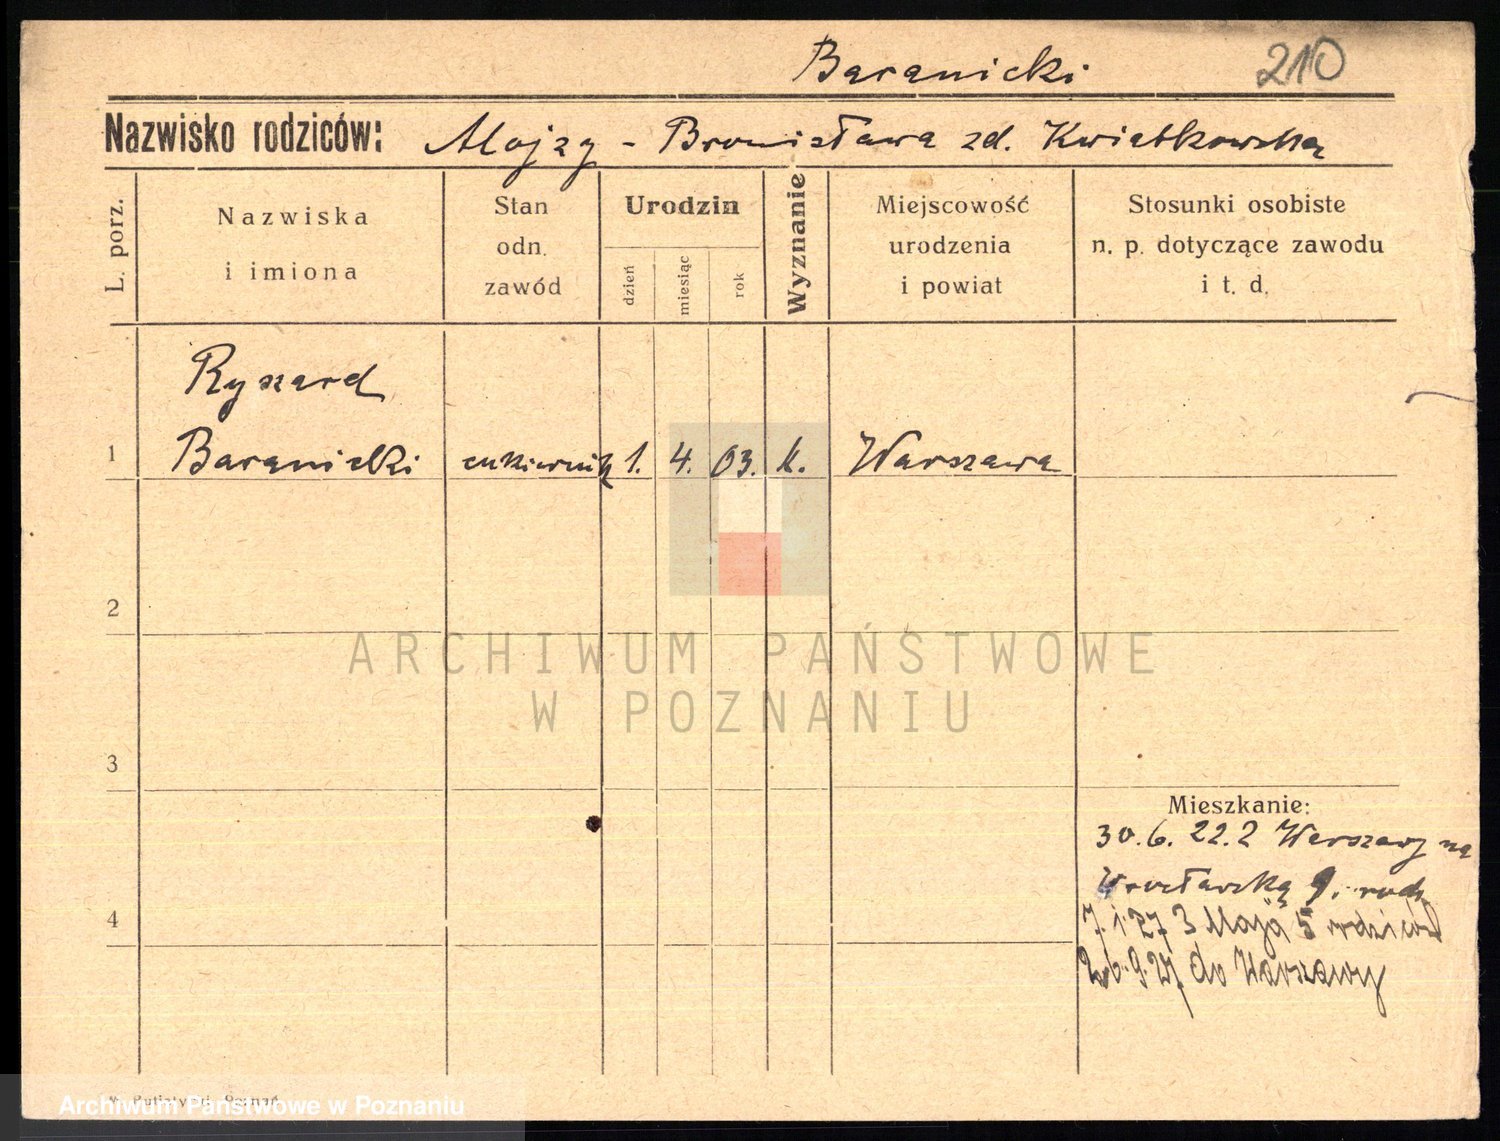 Baranicki 210
Nazwisko rodziców: Alojzy - Bronisława zd. Kwiatkowska
L. porz.
Nazwiska
i imiona
Stan
odn.
zawód
Urodzin
dzień
miesiąc
rok
Wyznanie
Miejscowość
urodzenia
i powiat
Stosunki osobiste
n. p. dotyczące zawodu
i t. d.
Ryszard
1 Baranicki cukiernik 1. 4. 03. k. Warszawa
2
ARCHIWUM PAŃSTWOWE
W POZNANIU
3
Mieszkanie:
30.6.22. z Warszawy na
Wrocławską 9. rodz.
4
7.1.27 3 Maja 5 rodziców
26.9.27 do Warszawy
Putiatycki, Poznań
Archiwum Państwowe w Poznaniu